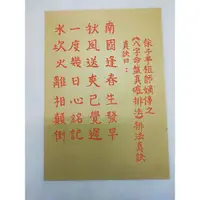 徐子平祖師親傳之
《八字命盤真確排法》排法真訣
真訣曰：
南國逢春生發早
秋風送爽已覺遲
一度幾日心銘記
水坎火離相顛倒